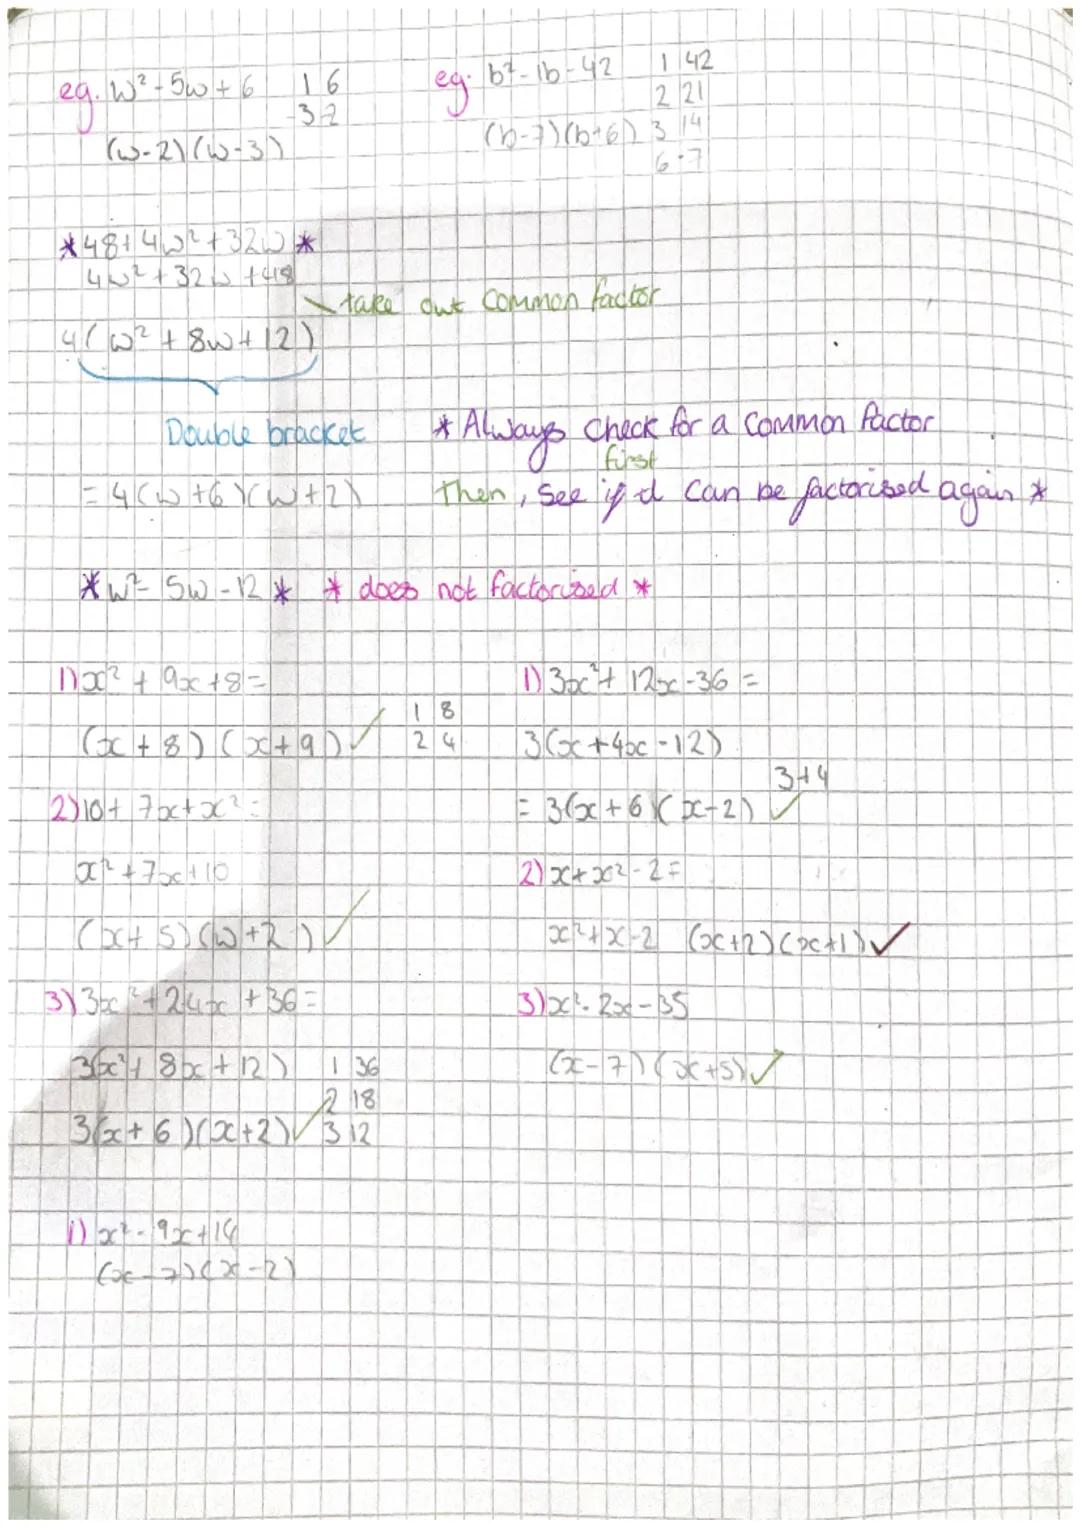 eg. w² - 5w + 6 1 6
-3 -2
(w-2)(w-3)
eg. b² - 1b - 42 1 42
2 21
(b-7)(b+6) 3 14
6 -7
*48+4w²+32w*
4w²+32w+48
take out common factor
4(w²+8w+12)
Double bracket
= 4(w+6)(w+2)
* Always check for a common factor
first
Then, see if it can be factorised again *
*w² - 5w - 12* * does not factorised *
1) x² + 9x + 8 =
(x+8)(x+9) ✓ 1 8
2 4
2) 10 + 7x + x² =
x² + 7x + 10
(x+5)(w+2) ✓
3) 3x² + 24x + 36 =
3(x² + 8x + 12) 1 36
2 18
3(x+6)(x+2) ✓ 3 12
1) x² - 9x + 14
(x-7)(x-2)
1) 3x² + 12x - 36 =
3(x+4x-12)
3+4
= 3(x+6)(x-2) ✓
2) x + x² - 2 =
x² + x - 2 (x+2)(x+1) ✓
3) x² - 2x - 35
(x-7)(x+5) ✓